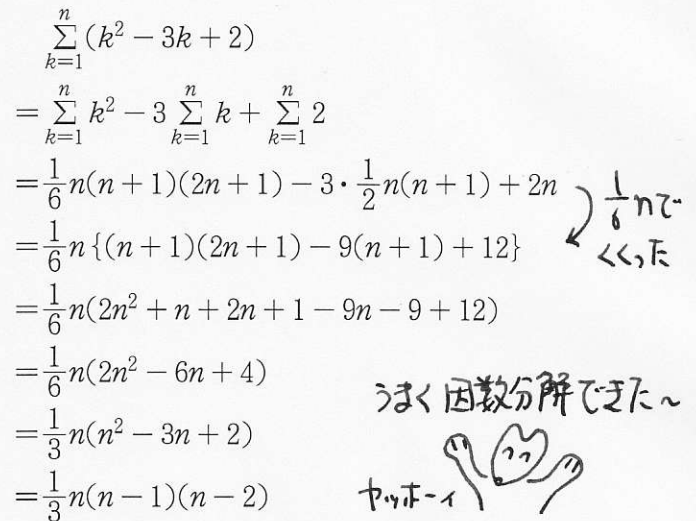 $\sum_{k=1}^{n}(k^2-3k+2)$
$=\sum_{k=1}^{n}k^2-3\sum_{k=1}^{n}k+\sum_{k=1}^{n}2$
$=\frac{1}{6}n(n+1)(2n+1)-3\cdot\frac{1}{2}n(n+1)+2n$
$=\frac{1}{6}n\{(n+1)(2n+1)-9(n+1)+12\}$
$\frac{1}{6}n$で
くくった
$=\frac{1}{6}n(2n^2+n+2n+1-9n-9+12)$
$=\frac{1}{6}n(2n^2-6n+4)$
うまく因数分解できた～
$=\frac{1}{3}n(n^2-3n+2)$
$=\frac{1}{3}n(n-1)(n-2)$
ヤッホーイ